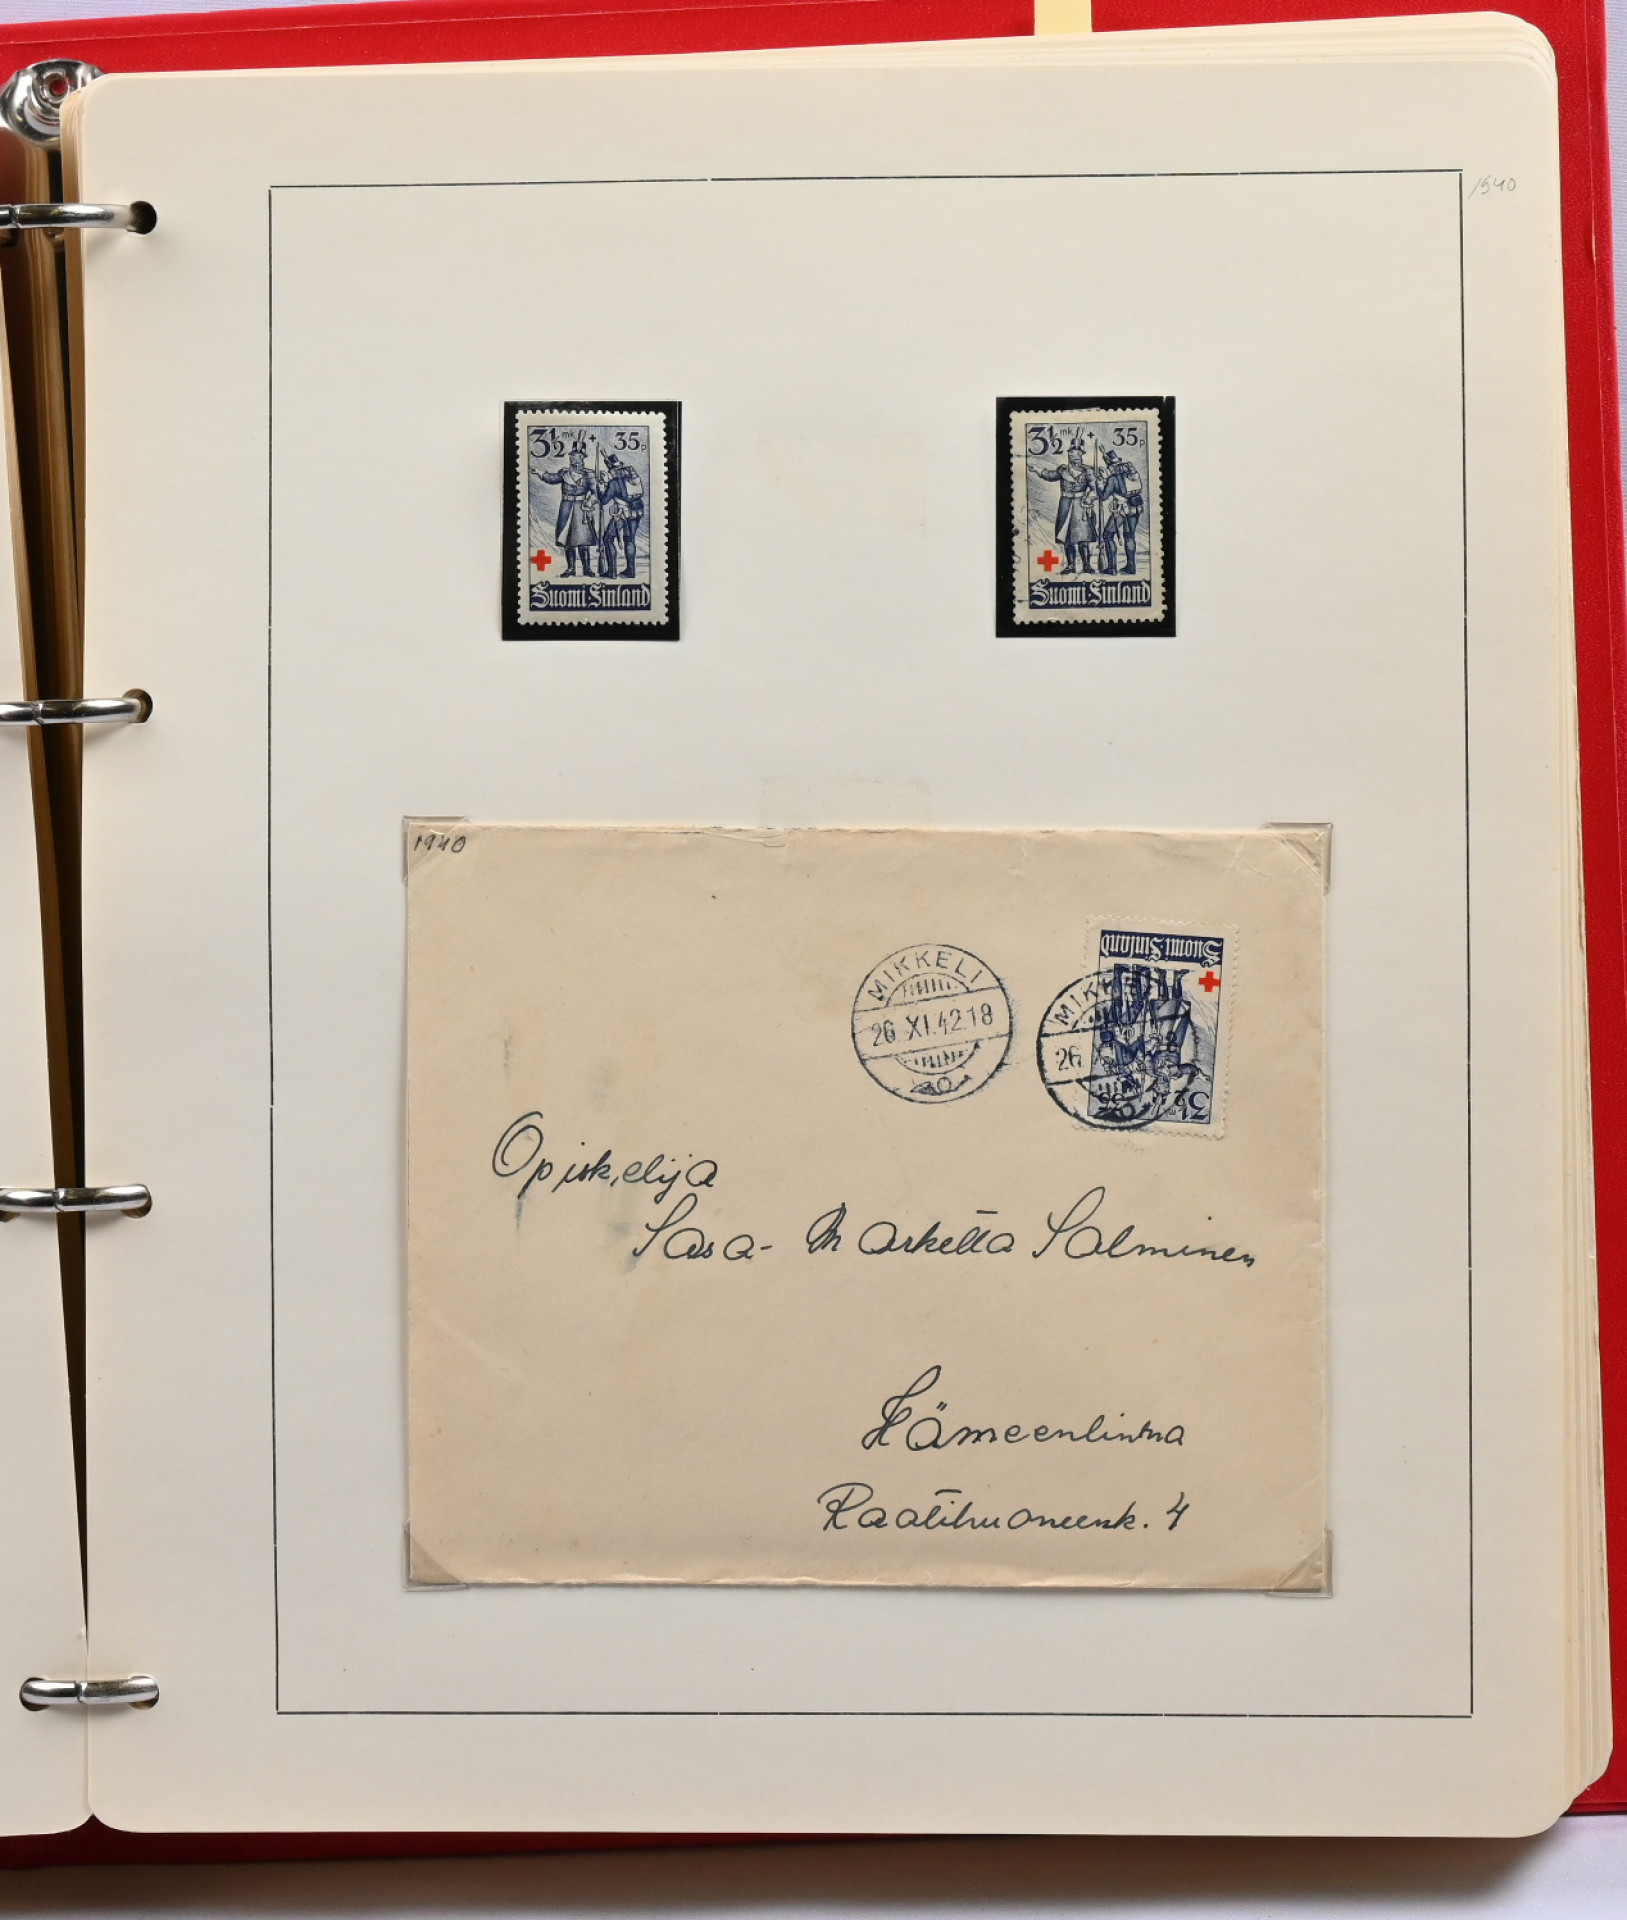 1940
3½ mk + 35 p
Suomi Finland
3½ mk + 35 p
Suomi Finland
1940
MIKKELI
26. XI. 42. 18
Suomi Finland
MIKKELI
26. X
3½ mk + 35
Opiskelija
Sasa-Marketta Salminen
Hämeenlinna
Raatihuoneenk. 4